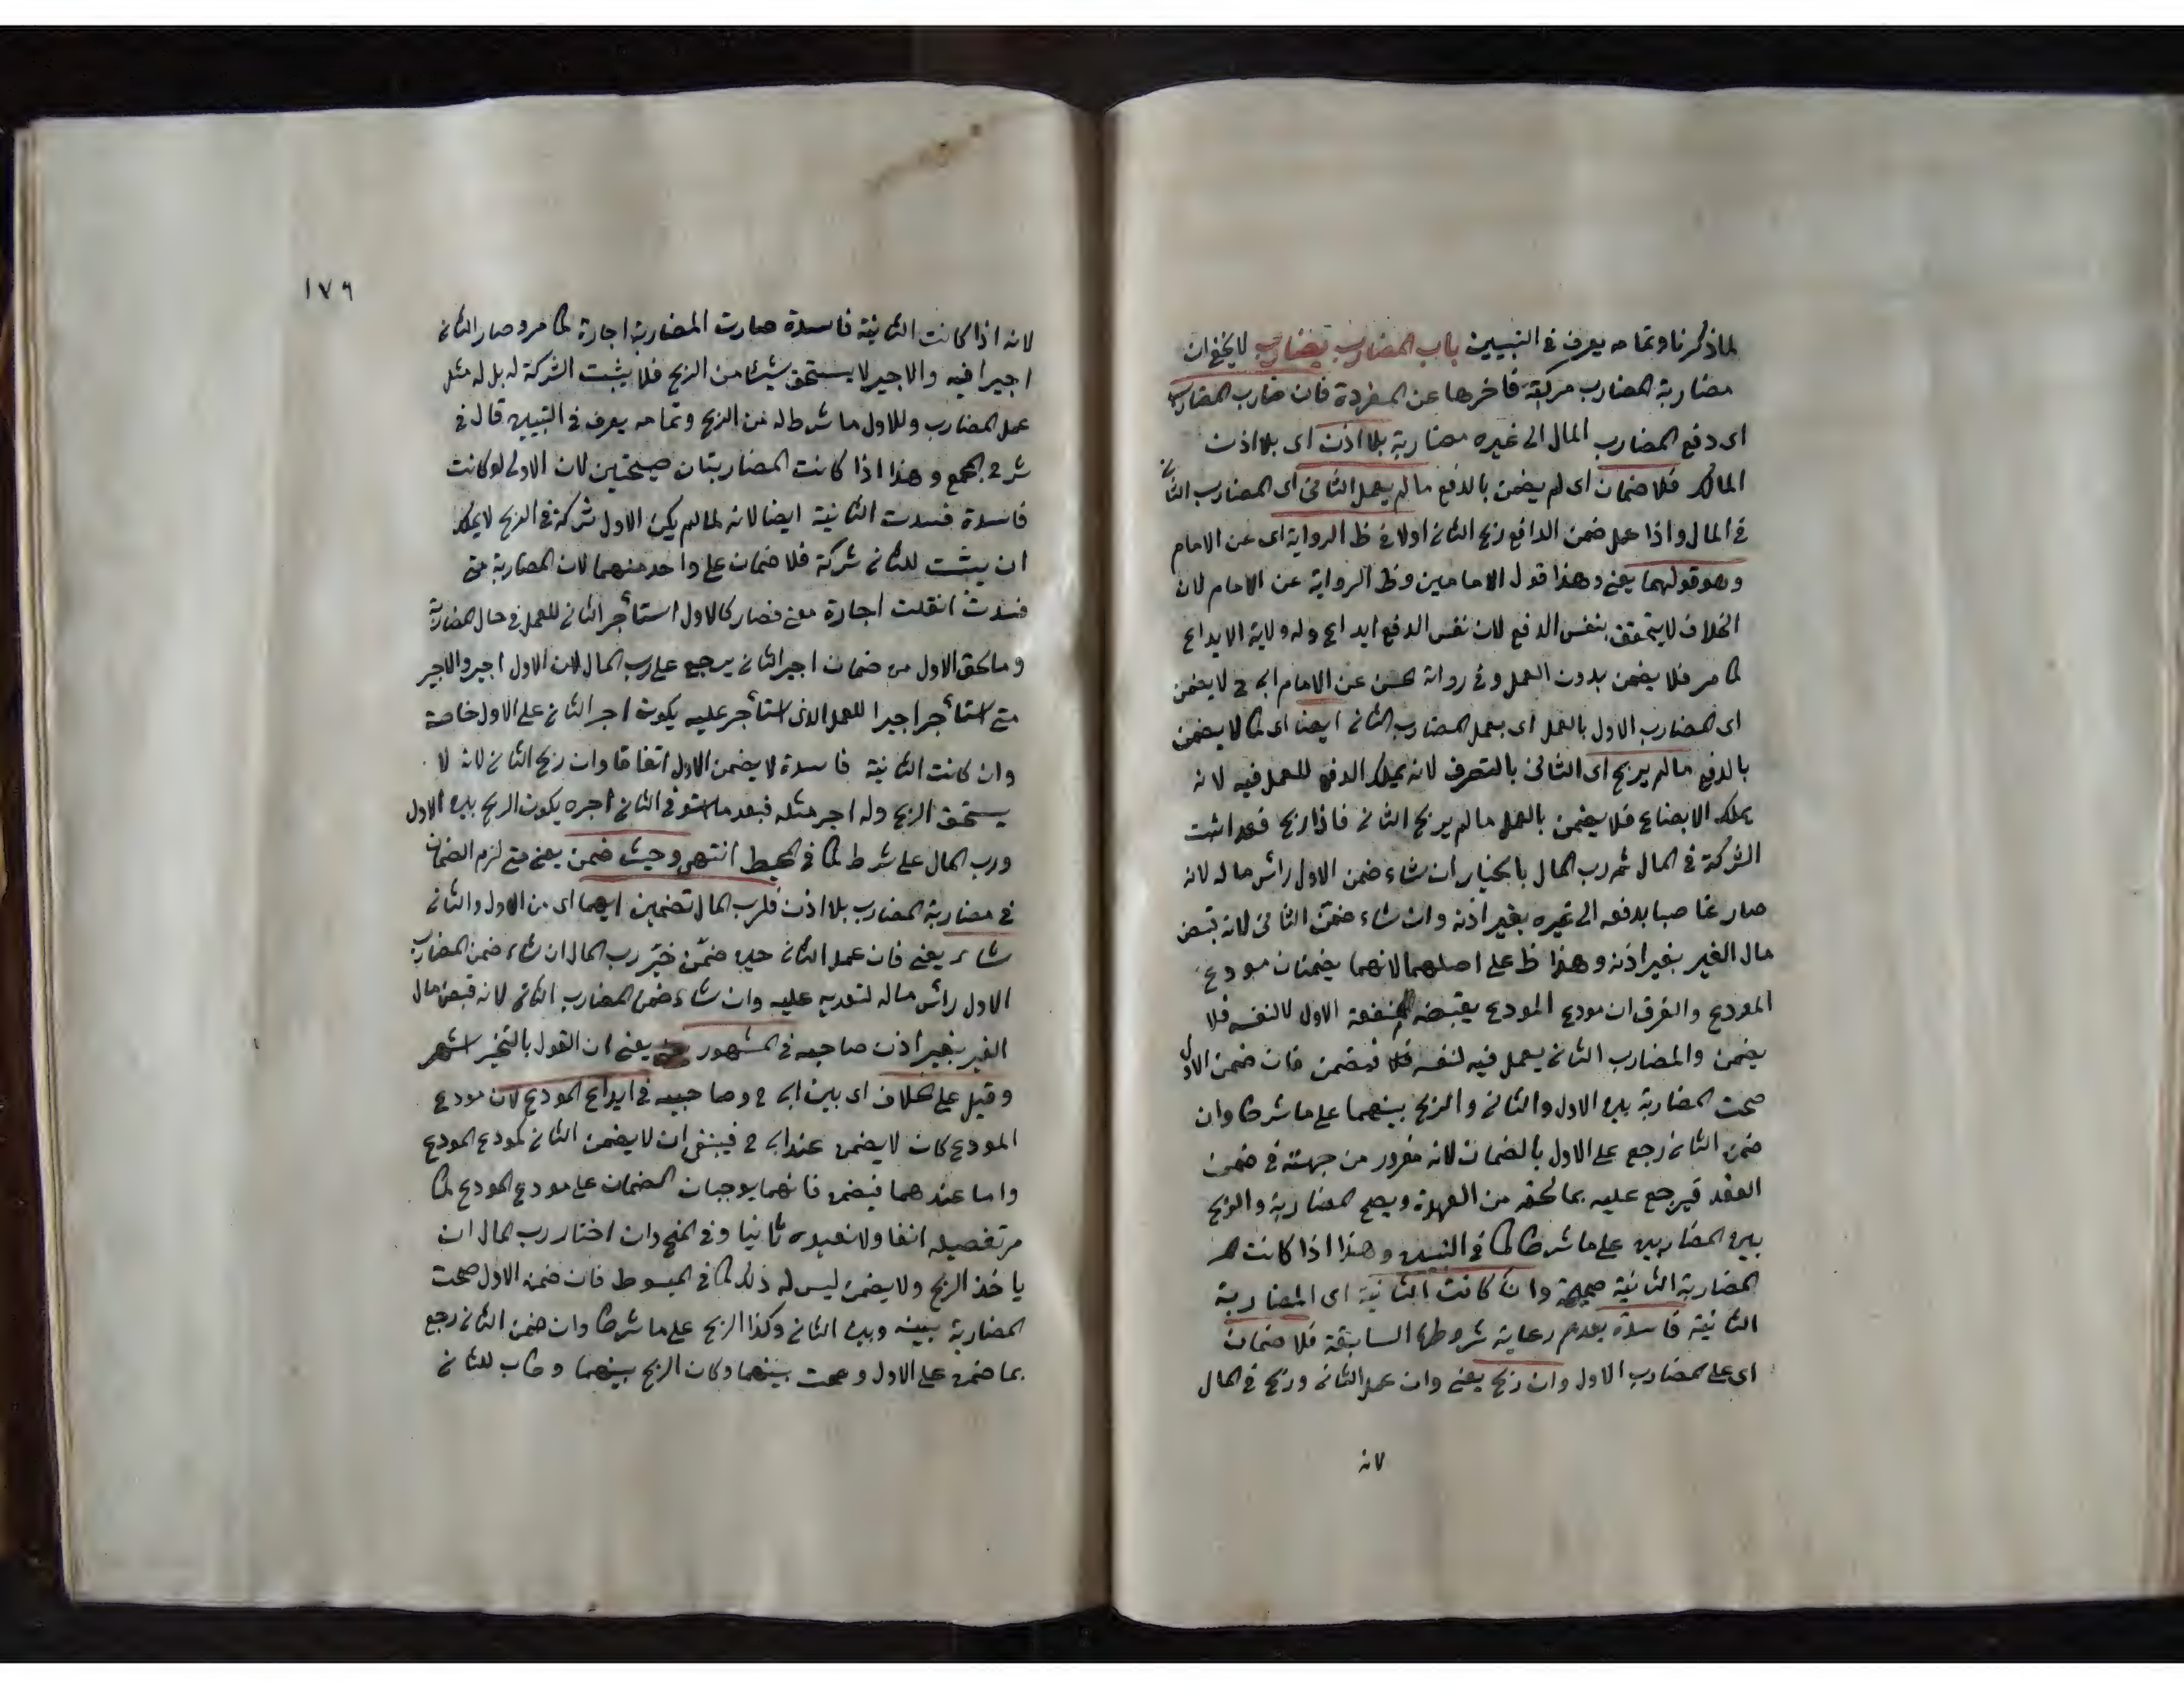 لما ذكرنا وتمامه يعرف في التبيين باب المضارب يضارب لا يخفى ان
مضاربة المضارب مركبة فاخرها عن المفردة فان ضارب المضارب
اى دفع المضارب المال الى غيره مضاربة بلا اذن اى بلا اذن
المالك فلا ضمان اى لم يضمن بالدفع ما لم يعمل الثانى اى المضارب الثانى
في المال واذا عمل ضمن الدافع ربح الثانى اولا في ظ الرواية اى عن الامام
وهو قولهما يعنى وهذا قول الامامين وظ الرواية عن الامام لان
الخلاف لا يتحقق بنفس الدفع لان نفس الدفع ايداع وله ولاية الايداع
كما مر فلا يضمن بدون العمل وفي رواية الحسن عن الامام ابى ح لا يضمن
اى المضارب الاول بالعمل اى بعمل المضارب الثانى ايضا اى كما لا يضمن
بالدفع ما لم يربح اى الثانى بالتصرف لانه يملك الدفع للعمل فيه لانه
يملك الابضاع فلا يضمن بالعمل ما لم يربح الثانى فاذا ربح فقد اثبت
الشركة في المال ثم رب المال بالخيار ان شاء ضمن الاول رأس ماله لانه
صار غاصبا بدفعه الى غيره بغير اذنه وان شاء ضمن الثانى لانه قبض
مال الغير بغير اذنه وهذا ظ على اصلهما لانهما يضمنان مودع
المودع والفرق ان مودع المودع يقبضه لمنفعة الاول لا لنفسه فلا
يضمن والمضارب الثانى يعمل فيه لنفسه فيضمن فان ضمن الاول
صحت المضاربة بين الاول والثانى والربح بينهما على ما شرطا وان
ضمن الثانى رجع على الاول بالضمان لانه مغرور من جهته في ضمن
العقد فيرجع عليه بما لحقه من العهدة ويصح المضاربة والربح
بين المضاربين على ما شرطا كما في التبيين وهذا اذا كانت
المضاربة الثانية صحيحة وان كانت الثانية اى المضاربة
الثانية فاسدة بعدم رعاية شروطها السابقة فلا ضمان
اى على المضارب الاول وان ربح يعنى وان عمل الثانى وربح في المال
لانه
١٧٦
لانه اذا كانت الثانية فاسدة صارت المضاربة اجارة كما مر وصار الثانى
اجيرا فيه والاجير لا يستحق شيئا من الربح فلا يثبت الشركة له بل له مثل
عمل المضارب وللاول ما شرط له من الربح وتمامه يعرف في التبيين قال في
شرح المجمع وهذا اذا كانت المضاربتان صحيحتين لان الاولى لو كانت
فاسدة فسدت الثانية ايضا لانه لما لم يكن الاول شركة في الربح لا يملك
ان يثبت للثانى شركة فلا ضمان على واحد منهما لان المضاربة متى
فسدت انقلبت اجارة معنى فصار كالاول استأجر الثانى للعمل في مال المضاربة
وما لحق الاول من ضمان اجير الثانى يرجع على رب المال لان الاول اجير والاجير
متى استأجر اجيرا للعمل الذى استأجر عليه يكون اجر الثانى على الاول خاصة
وان كانت الثانية فاسدة لا يضمن الاول اتفاقا وان ربح الثانى لانه لا
يستحق الربح وله اجر مثله فبعد ما استوفى الثانى اجره يكون الربح بين الاول
ورب المال على شرط كما في المحيط انتهى وحيث ضمن يعنى متى لزم الضمان
في مضاربة المضارب بلا اذن فلرب المال تضمين ايهما اى من الاول والثانى
شاء يعنى فان عمل الثانى حين ضمن خير رب المال ان شاء ضمن المضارب
الاول رأس ماله لتعديه عليه وان شاء ضمن المضارب الثانى لانه قبض مال
الغير بغير اذن صاحبه في المشهور يعنى ان القول بالتخيير اشهر
وقيل على الخلاف اى بين ابى ح وصاحبيه في ايداع المودع لان مودع
المودع كان لا يضمن عند ابى ح فينبغى ان لا يضمن الثانى كمودع المودع
واما عندهما فيضمن فانهما يوجبان الضمان على مودع المودع كما
مر تفصيله انفا ولا نعيده ثانيا وفي المنح وان اختار رب المال ان
ياخذ الربح ولا يضمن ليس له ذلك كما في المبسوط فان ضمن الاول صحت
المضاربة بينه وبين الثانى وكذا الربح على ما شرطا وان ضمن الثانى رجع
بما ضمن على الاول وصحت بينهما وكان الربح بينهما وطاب للثانى